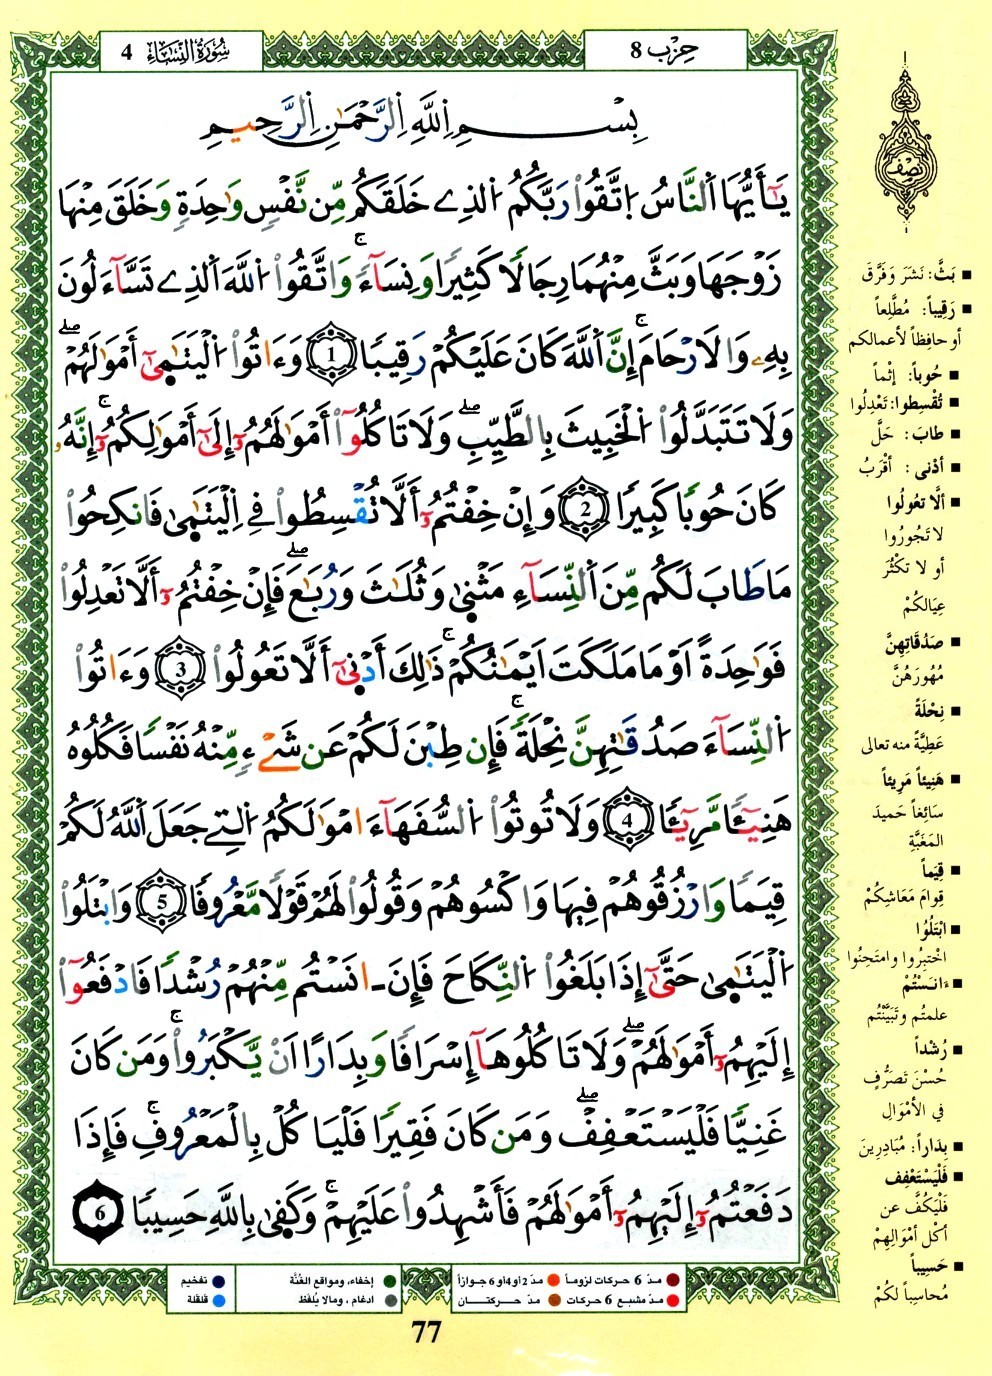 سُورَةُ النِّسَاءِ 4
حِزْب 8
بِسْمِ اِللَّهِ اِلرَّحْمَٰنِ اِلرَّحِيمِ
يَٰٓأَيُّهَا اَلنَّاسُ اُتَّقُواْ رَبَّكُمُ اُلذِے خَلَقَكُم مِّن نَّفْسٖ وَٰحِدَةٖ وَخَلَقَ مِنْهَا
زَوْجَهَا وَبَثَّ مِنْهُمَا رِجَالاٗ كَثِيراٗ وَنِسَآءٗۚ وَاتَّقُواْ اُللَّهَ اَلذِے تَسَّآءَلُونَ
بِهِۦ وَالَارْحَامَۚ إِنَّ اَللَّهَ كَانَ عَلَيْكُمْ رَقِيباٗ 1 وَءَاتُواْ اُلْيَتَٰمَىٰٓ أَمْوَٰلَهُمْۖ
وَلَا تَتَبَدَّلُواْ اُلْخَبِيثَ بِالطَّيِّبِۖ وَلَا تَاكُلُوٓاْ أَمْوَٰلَهُمُۥٓ إِلَىٰٓ أَمْوَٰلِكُمُۥٓۚ إِنَّهُۥ
كَانَ حُوباٗ كَبِيراٗ 2 وَإِنْ خِفْتُمُۥٓ أَلَّا تُقْسِطُواْ فِے اِلْيَتَٰمَىٰ فَانكِحُواْ
مَا طَابَ لَكُم مِّنَ اَلنِّسَآءِ مَثْنَىٰ وَثُلَٰثَ وَرُبَٰعَۖ فَإِنْ خِفْتُمُۥٓ أَلَّا تَعْدِلُواْ
فَوَٰحِدَةً اَوْ مَا مَلَكَتَ اَيْمَٰنُكُمْۚ ذَٰلِكَ أَدْنَىٰٓ أَلَّا تَعُولُواْ 3 وَءَاتُواْ
اُلنِّسَآءَ صَدُقَٰتِهِنَّ نِحْلَةٗۚ فَإِن طِبْنَ لَكُمْ عَن شَےْءٖ مِّنْهُ نَفْساٗ فَكُلُوهُ
هَنِيٓـٔاٗ مَّرِيٓـٔاٗ 4 وَلَا تُوتُواْ اُلسُّفَهَآءَ امْوَٰلَكُمُ اُلتِے جَعَلَ اَللَّهُ لَكُمْ
قِيَماٗ وَارْزُقُوهُمْ فِيهَا وَاكْسُوهُمْ وَقُولُواْ لَهُمْ قَوْلاٗ مَّعْرُوفاٗ 5 وَابْتَلُواْ
اُلْيَتَٰمَىٰ حَتَّىٰٓ إِذَا بَلَغُواْ اُلنِّكَاحَ فَإِنَ ـ انَسْتُم مِّنْهُمْ رُشْداٗ فَادْفَعُوٓاْ
إِلَيْهِمُۥٓ أَمْوَٰلَهُمْۖ وَلَا تَاكُلُوهَآ إِسْرَافاٗ وَبِدَاراً اَنْ يَّكْبَرُواْۚ وَمَن كَانَ
غَنِيّاٗ فَلْيَسْتَعْفِفْۖ وَمَن كَانَ فَقِيراٗ فَلْيَاكُلْ بِالْمَعْرُوفِۚ فَإِذَا
دَفَعْتُمُۥٓ إِلَيْهِمُۥٓ أَمْوَٰلَهُمْ فَأَشْهِدُواْ عَلَيْهِمْۚ وَكَفَىٰ بِاللَّهِ حَسِيباٗ 6
نِصْف
■ بَثَّ: نَشَرَ وَفَرَّقَ
■ رَقِيباً: مُطَّلِعاً
أو حافِظاً لأعمالكم
■ حُوباً: إثْماً
■ تُقْسِطوا: تَعْدِلُوا
■ طابَ: حَلَّ
■ أدْنى: أقْرَبُ
■ ألّا تعُولُوا
لا تَجُورُوا
أو لا تكْثُرَ
عِيَالكُمْ
■ صَدُقَاتِهِنَّ
مُهُورَهُنَّ
■ نِحْلَةً
عَطِيَّةً منه تعالى
■ هَنِيئاً مَرِيئاً
سَائِغاً حَميدَ
المَغَبَّةِ
■ قِيَماً
قِوامَ مَعَاشِكُمْ
■ ابْتَلُوا
اخْتبِرُوا وامتَحِنُوا
■ ءَانَسْتُمْ
علمتُم وتَبَيَّنْتُم
■ رُشْداً
حُسْنَ تَصَرُّفٍ
في الأمْوَالِ
■ بِدَاراً: مُبَادِرِينَ
■ فَلْيَسْتَعْفِف
فَلْيَكُفَّ عن
أكْل أمْوَالِهِمْ
■ حَسِيباً
مُحاسِباً لكُمْ
مدّ 6 حركات لزوماً مدّ 2 أو 4 أو 6 جوازاً
مدّ مشبع 6 حركات مدّ حركتان
إخفاء، ومواقع الغُنَّة
ادغام، ومالا يُلفَظ
تفخيم
قلقلة
77